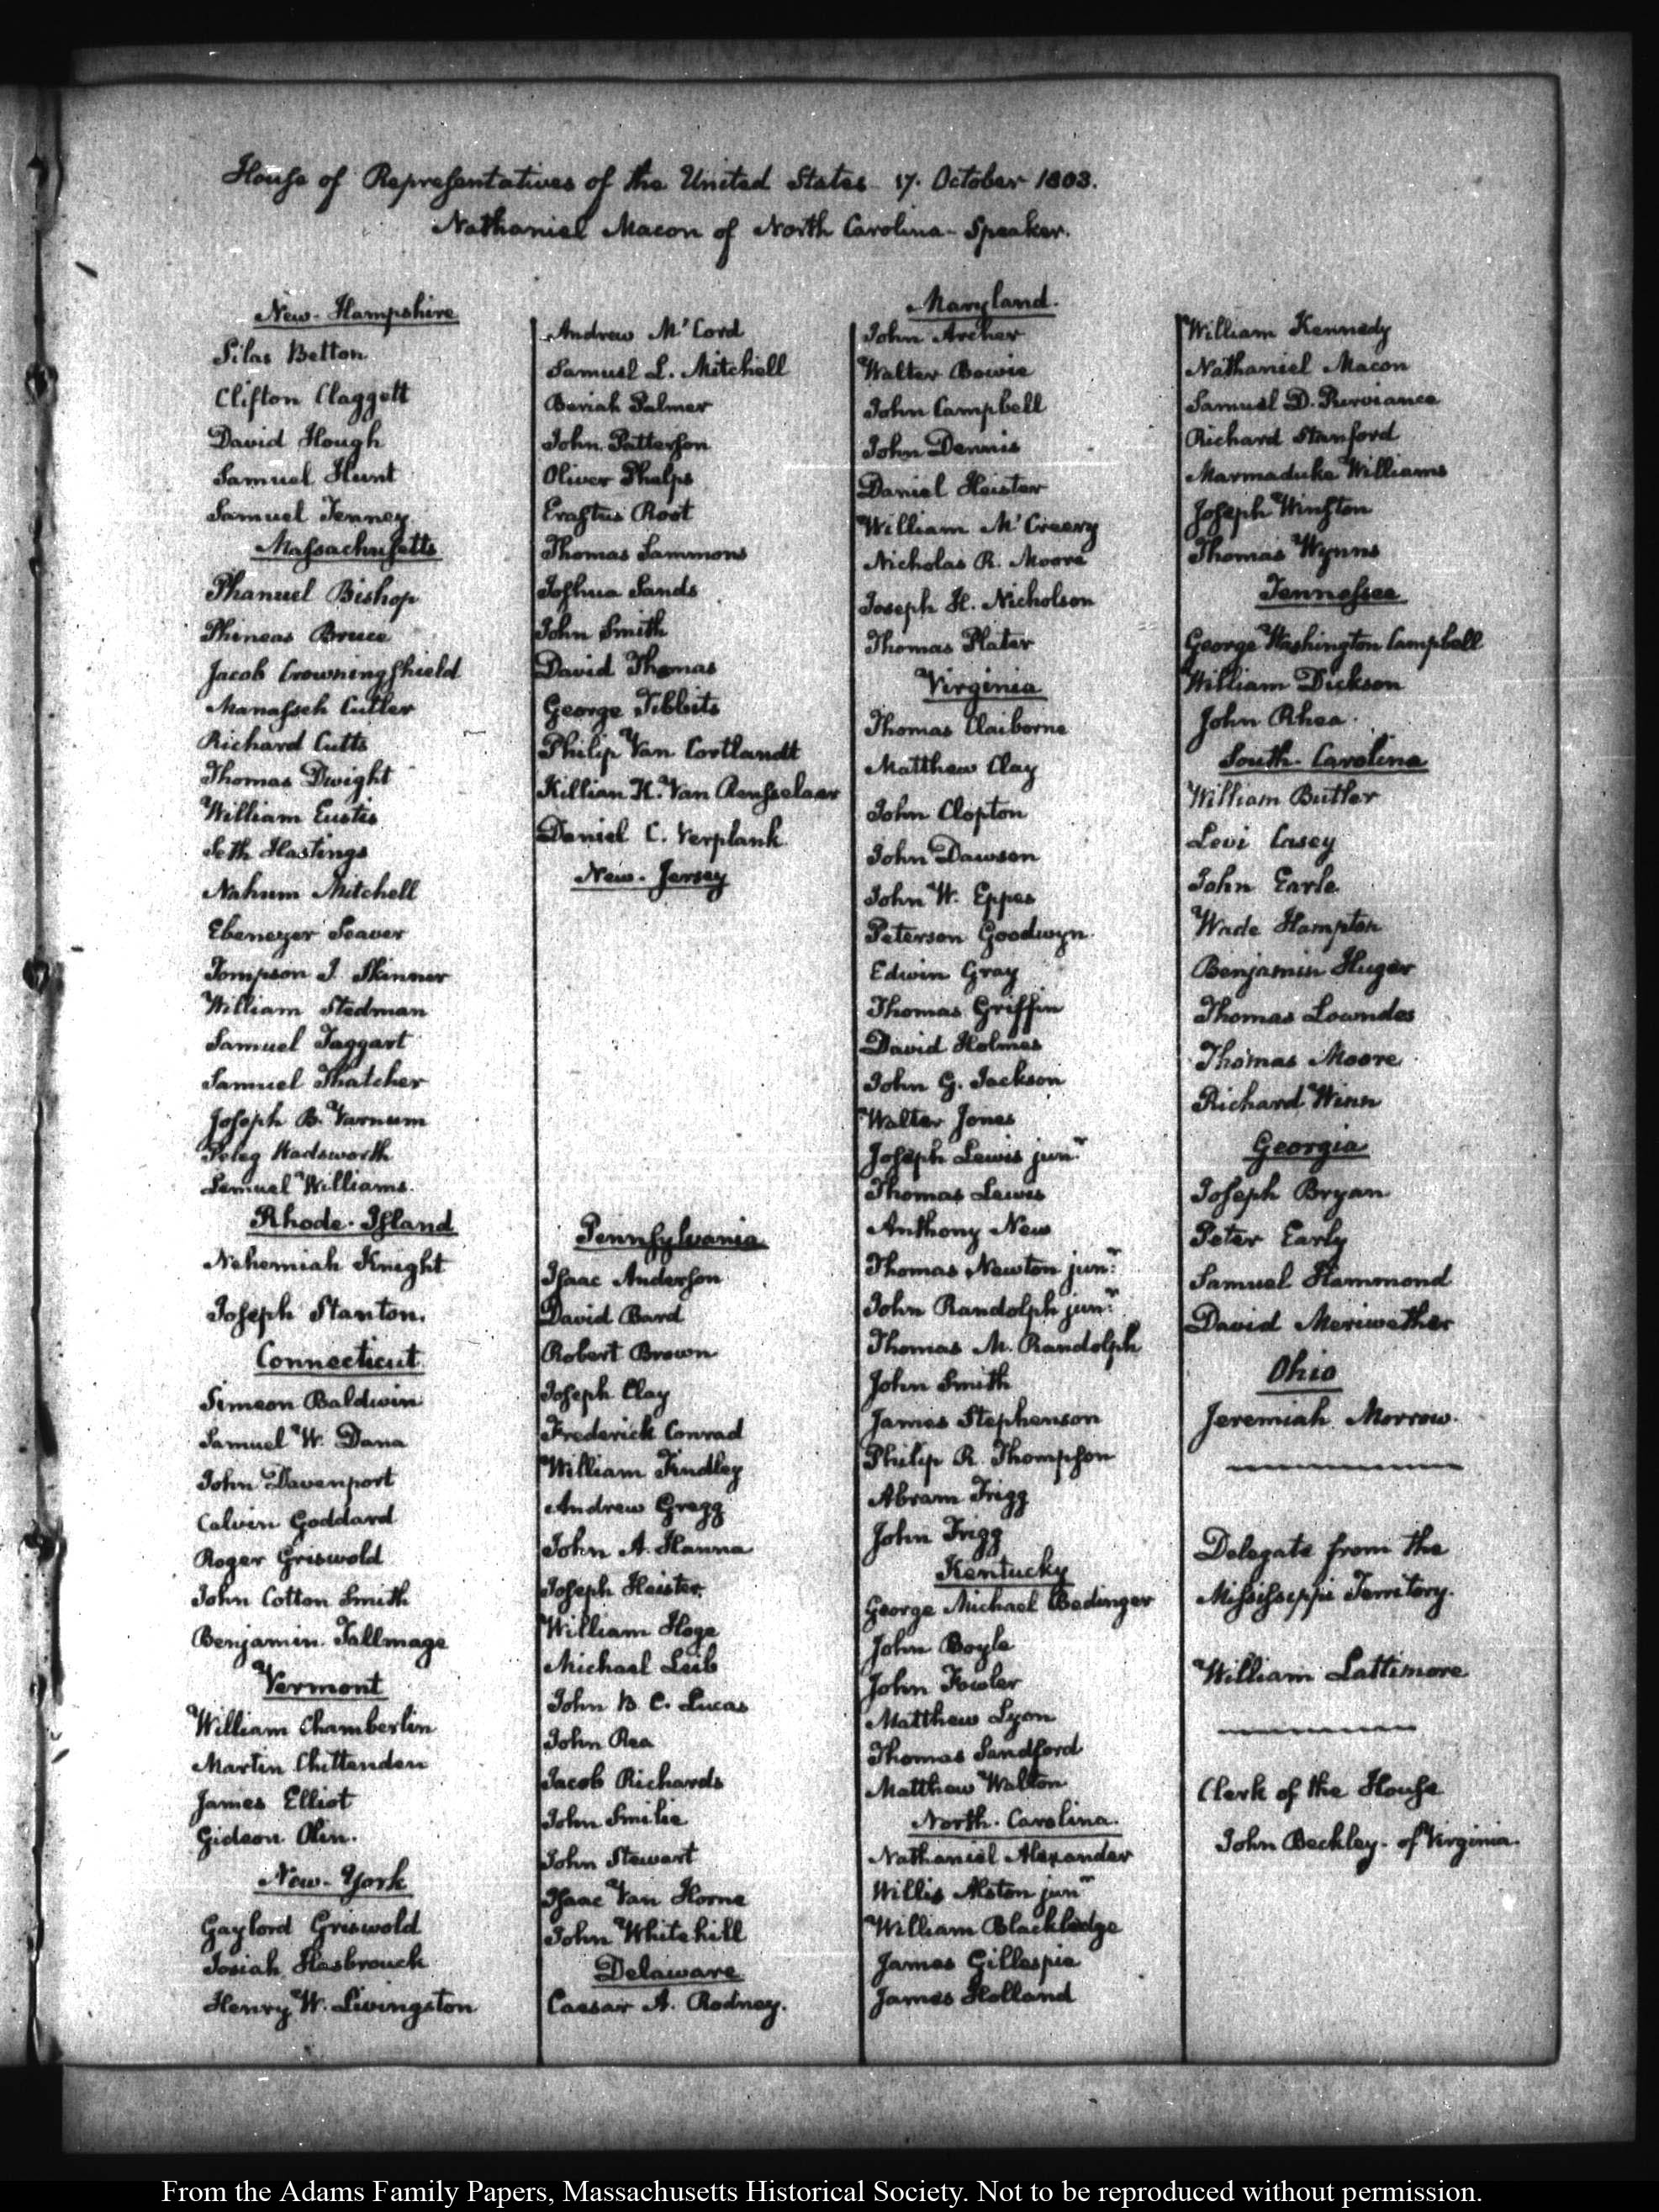 House of Representatives of the United States 17. October 1803.
Nathaniel Macon of North Carolina - Speaker.
New-Hampshire
Silas Betton
Clifton Claggett
David Hough
Samuel Hunt
Samuel Tenney
Massachusetts
Phanuel Bishop
Phineas Bruce
Jacob Crowningshield
Manasseh Cutler
Richard Cutts
Thomas Dwight
William Eustis
Seth Hastings
Nahum Mitchell
Ebenezer Seaver
Tompson J. Skinner
William Stedman
Samuel Taggart
Samuel Thatcher
Joseph B. Varnum
Peleg Wadsworth
Lemuel Williams.
Rhode-Island
Nehemiah Knight
Joseph Stanton.
Connecticut
Simeon Baldwin
Samuel W. Dana
John Davenport
Calvin Goddard
Roger Griswold
John Cotton Smith
Benjamin Tallmage
Vermont
William Chamberlin
Martin Chittenden
James Elliot
Gideon Olin.
New-York
Gaylord Griswold
Josiah Hasbrouck
Henry W. Livingston
Andrew McCord
Samuel L. Mitchell
Beriah Palmer
John Patterson
Oliver Phelps
Erastus Root
Thomas Sammons
Joshua Sands
John Smith
David Thomas
George Tibbits
Philip Van Cortlandt
Killian K. Van Rensselaer
Daniel C. Verplank
New-Jersey
Pennsylvania
Isaac Anderson
David Bard
Robert Brown
Joseph Clay
Frederick Conrad
William Findley
Andrew Gregg
John A. Hanna
Joseph Heister
William Hoge
Michael Leib
John B. C. Lucas
John Rea
Jacob Richards
John Smilie
John Stewart
Isaac Van Horne
John Whitehill
Delaware
Caesar A. Rodney.
Maryland.
John Archer
Walter Bowie
John Campbell
John Dennis
Daniel Heister
William McCreery
Nicholas R. Moore
Joseph H. Nicholson
Thomas Plater
Virginia
Thomas Claiborne
Matthew Clay
John Clopton
John Dawson
John W. Eppes
Peterson Goodwyn.
Edwin Gray
Thomas Griffin
David Holmes
John G. Jackson
Walter Jones
Joseph Lewis junr
Thomas Lewis
Anthony New
Thomas Newton junr
John Randolph junr
Thomas M. Randolph
John Smith
James Stephenson
Philip R. Thompson
Abram Trigg
John Trigg
Kentucky
George Michael Bedinger
John Boyle
John Fowler
Matthew Lyon
Thomas Sandford
Matthew Walton
North-Carolina.
Nathaniel Alexander
Willis Alston junr
William Blackledge
James Gillespie
James Holland
William Kennedy
Nathaniel Macon
Samuel D. Purviance
Richard Stanford
Marmaduke Williams
Joseph Winston
Thomas Wynns
Tennessee
George Washington Campbell
William Dickson
John Rhea.
South-Carolina
William Butler
Levi Casey
John Earle
Wade Hampton
Benjamin Huger
Thomas Lowndes
Thomas Moore
Richard Winn
Georgia
Joseph Bryan
Peter Early
Samuel Hammond
David Meriwether
Ohio
Jeremiah Morrow.
Delegate from the
Mississippi Territory.
William Lattimore
Clerk of the House
John Beckley - of Virginia.
From the Adams Family Papers, Massachusetts Historical Society. Not to be reproduced without permission.